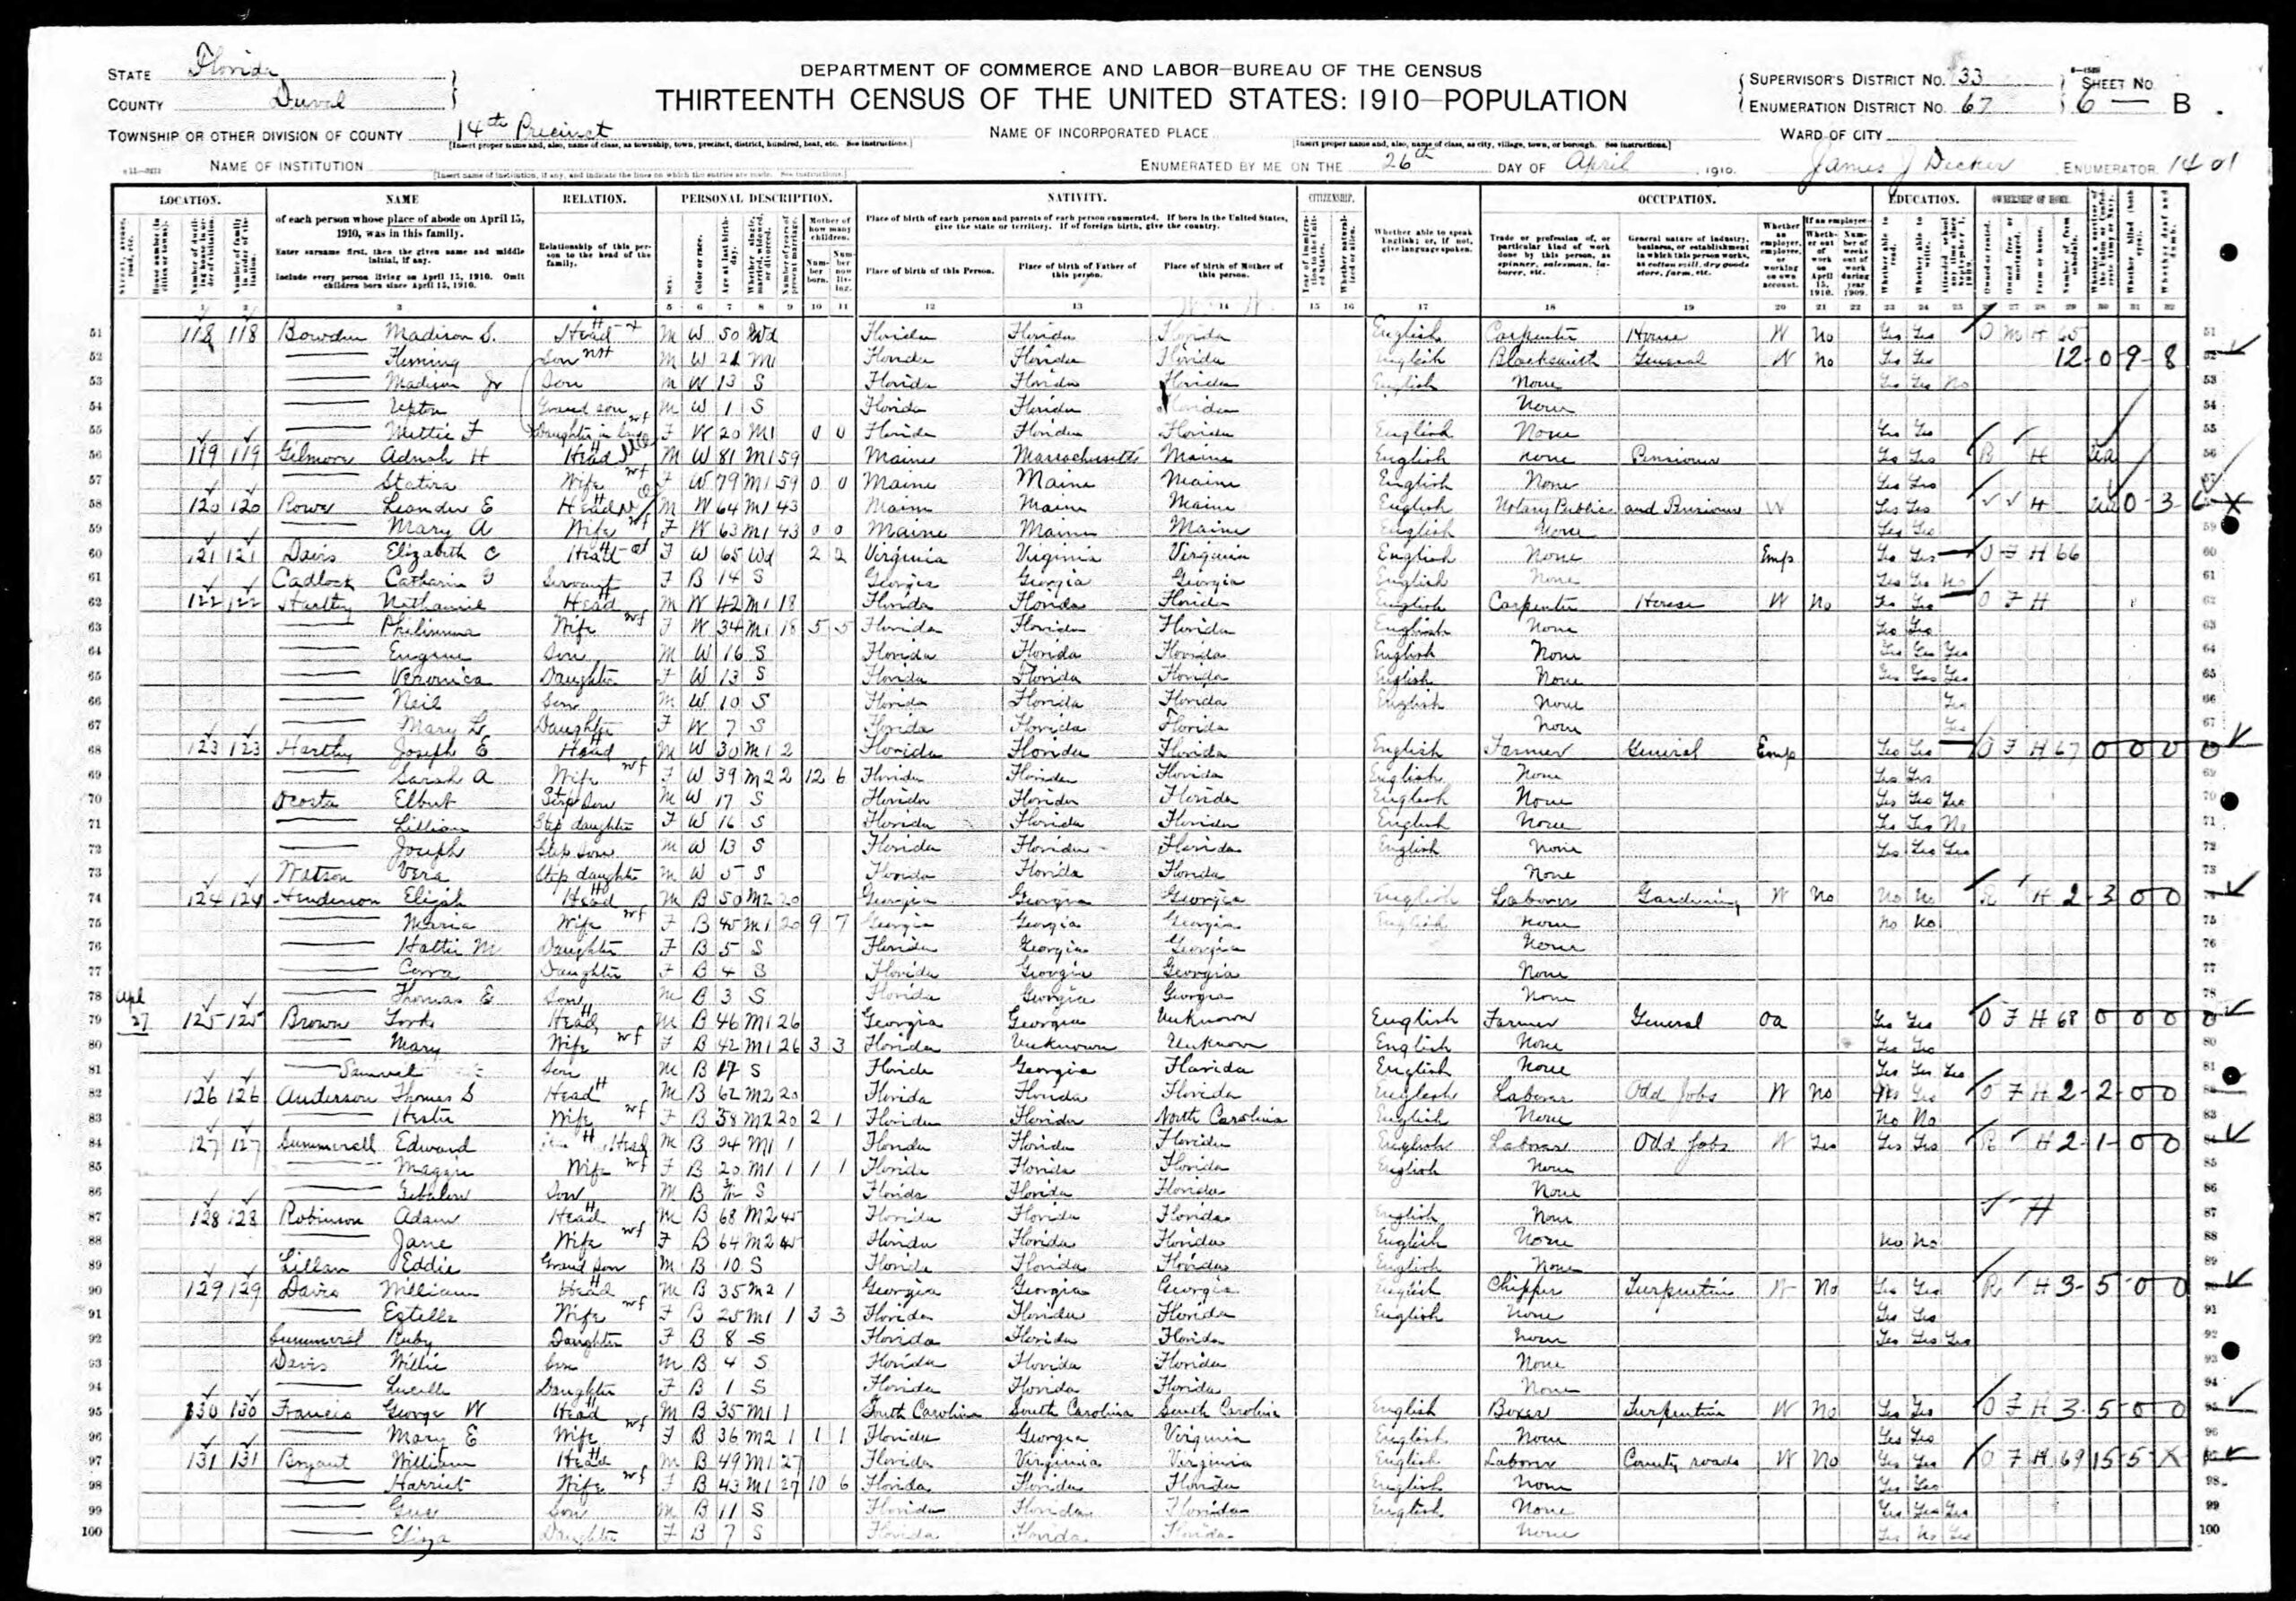 DEPARTMENT OF COMMERCE AND LABOR—BUREAU OF THE CENSUS
THIRTEENTH CENSUS OF THE UNITED STATES: 1910—POPULATION
STATE Florida
COUNTY Duval
TOWNSHIP OR OTHER DIVISION OF COUNTY 14th Precinct
NAME OF INSTITUTION
NAME OF INCORPORATED PLACE
ENUMERATED BY ME ON THE 26th DAY OF April, 1910.
SUPERVISOR'S DISTRICT NO. 33
ENUMERATION DISTRICT NO. 67
SHEET NO. 6 — B
WARD OF CITY
James J Decker ENUMERATOR
LOCATION. NAME RELATION. PERSONAL DESCRIPTION. NATIVITY. CITIZENSHIP. OCCUPATION. EDUCATION. OWNERSHIP OF HOME.
of each person whose place of abode on April 15, 1910, was in this family.
Enter surname first, then the given name and middle initial, if any.
Include every person living on April 15, 1910. Omit children born since April 15, 1910.
Relationship of this person to the head of the family.
Place of birth of each person and parents of each person enumerated. If born in the United States, give the state or territory. If of foreign birth, give the country.
Place of birth of this Person. Place of birth of Father of this person. Place of birth of Mother of this person.
51 118 118 Bowden Madison S. Head M W 50 Wd Florida Florida Florida English Carpenter House W No Yes Yes O M H 65
52 Fleming Son M W M1 Florida Florida Florida English Blacksmith General W No Yes Yes 12-0 9-8
53 Madison Jr Son M W 13 S Florida Florida Florida English None Yes Yes No
54 Grand son M W 1 S Florida Florida Florida None
55 Mettie F Daughter in law F W 20 M1 0 0 Florida Florida Florida English None Yes Yes
56 119 119 Gilmore Adnah H Head M W 81 M1 59 Maine Massachusetts Maine English none Pensioner Yes Yes R H ua
57 Statira Wife F W 79 M1 59 0 0 Maine Maine Maine English None Yes Yes
58 120 120 Rowe Leander E Head M W 64 M1 43 Maine Maine Maine English Notary Public and Pensioner W Yes Yes H ua 0-3
59 Mary A Wife F W 63 M1 43 0 0 Maine Maine Maine English None Yes Yes
60 121 121 Davis Elizabeth C Head F W 65 Wd 2 2 Virginia Virginia Virginia English None Emp Yes Yes O F H 66
61 Cadlock Catharin Servant F B 14 S Georgia Georgia Georgia English None Yes Yes No
62 122 122 Hartley Nathaniel Head M W 42 M1 18 Florida Florida Florida English Carpenter House W No Yes Yes O F H
63 Philimina Wife F W 34 M1 18 5 5 Florida Florida Florida English None Yes Yes
64 Eugene Son M W 16 S Florida Florida Florida English None Yes Yes Yes
65 Veronica Daughter F W 13 S Florida Florida Florida English None Yes Yes Yes
66 Neil Son M W 10 S Florida Florida Florida English None Yes
67 Mary L Daughter F W 7 S Florida Florida Florida None Yes
68 123 123 Hartley Joseph E Head M W 30 M1 2 Florida Florida Florida English Farmer General Emp Yes Yes O F H 67 0 0 0 0
69 Sarah A Wife F W 39 M2 2 12 6 Florida Florida Florida English None Yes Yes
70 Dcosta Elbert Step Son M W 17 S Florida Florida Florida English None Yes Yes Yes
71 Lillian Step daughter F W 16 S Florida Florida Florida English None Yes Yes No
72 Joseph Step Son M W 13 S Florida Florida Florida English None Yes Yes Yes
73 Watson Vera Step daughter M W 5 S Florida Florida Florida None
74 124 124 Henderson Elijah Head M B 50 M2 20 Georgia Georgia Georgia English Laborer Gardening W No No No R H 2-3 0 0
75 Maria Wife F B 45 M1 20 9 7 Georgia Georgia Georgia English None No No
76 Hattie M Daughter F B 5 S Florida Georgia Georgia None
77 Corra Daughter F B 4 S Florida Georgia Georgia None
78 Apl Thomas E Son M B 3 S Florida Georgia Georgia None
79 27 125 125 Brown York Head M B 46 M1 26 Georgia Georgia Unknown English Farmer General Oa Yes Yes O F H 68 0 0 0 0
80 Mary Wife F B 42 M1 26 3 3 Florida Unknown Unknown English None Yes Yes
81 Samuel Son M B 17 S Florida Georgia Florida English None Yes Yes Yes
82 126 126 Anderson Thomas S Head M B 62 M2 20 Florida Florida Florida English Laborer Odd Jobs W No Yes Yes O F H 2-2-0 0
83 Hester Wife F B 38 M2 20 2 1 Florida Florida North Carolina English None No No
84 127 127 Summerall Edward Head M B 24 M1 1 Florida Florida Florida English Laborer Odd Jobs W Yes Yes Yes R H 2-1-0 0
85 Maggie Wife F B 20 M1 1 1 1 Florida Florida Florida English None
86 Son M B S Florida Florida Florida None
87 128 128 Robinson Adam Head M B 68 M2 45 Florida Florida Florida English None H
88 Jane Wife F B 64 M2 45 Florida Florida Florida English None No No
89 Lillan Eddie Grand Son M B 10 S Florida Florida Florida English None
90 129 129 Davis William Head M B 35 M2 1 Georgia Georgia Georgia English Chipper Turpentine W No Yes Yes R H 3-5-0 0
91 Estella Wife F B 25 M1 1 3 3 Florida Florida Florida English None Yes Yes
92 Summeral Ruby Daughter F B 8 S Florida Florida Florida None Yes Yes Yes
93 Davis Willie Son M B 4 S Florida Florida Florida None
94 Lucille Daughter F B 1 S Florida Florida Florida None
95 130 130 Francis George W Head M B 35 M1 1 South Carolina South Carolina South Carolina English Boxer Turpentine W No Yes Yes O F H 3-5-0 0
96 Mary E Wife F B 36 M2 1 1 1 Florida Georgia Virginia English None Yes Yes
97 131 131 Bryant William Head M B 49 M1 27 Florida Virginia Virginia English Laborer County roads W No Yes Yes O F H 69 15-5-X
98 Harriet Wife F B 43 M1 27 10 6 Florida Florida Florida English None Yes Yes
99 Gus Son M B 11 S Florida Florida Florida English None Yes Yes Yes
100 Eliza Daughter F B 7 S Florida Florida Florida None Yes No Yes